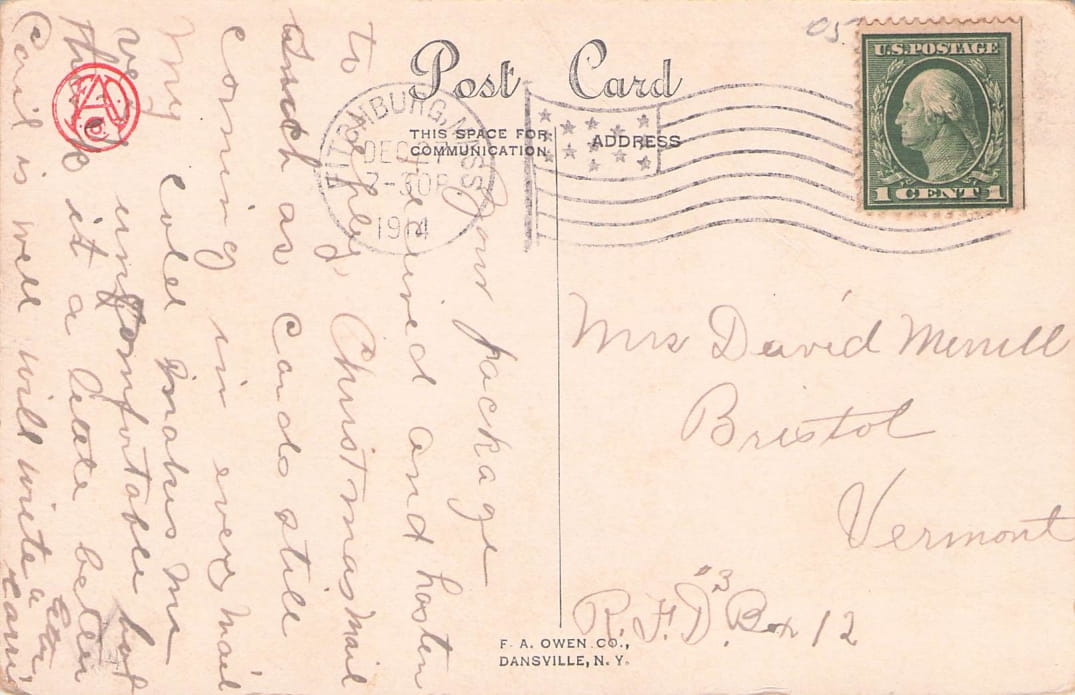 Post Card
THIS SPACE FOR
COMMUNICATION
ADDRESS
U.S. POSTAGE
1 CENT 1
FITCHBURG, MASS
DEC 2
7-30P
1914
Your package
received and hasten
to reply, Christmas Mail
Such as cards still
coming in every Mail
My cold makes me
very uncomfortable but
think it a little better
Earl is well will write a
letter
Carrie
Mrs David Merrill
Bristol
Vermont
R.F.D. #3 Box 12
F. A. OWEN CO.,
DANSVILLE, N. Y.